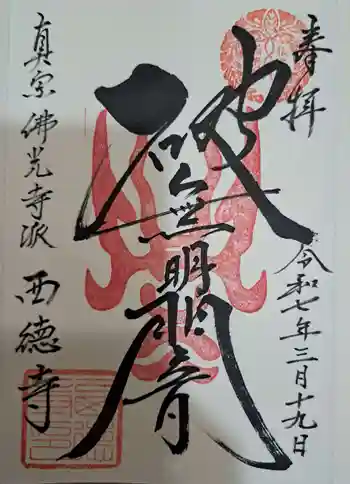 奉拝
令和七年三月十九日
破無明闇
真宗佛光寺派 西徳寺